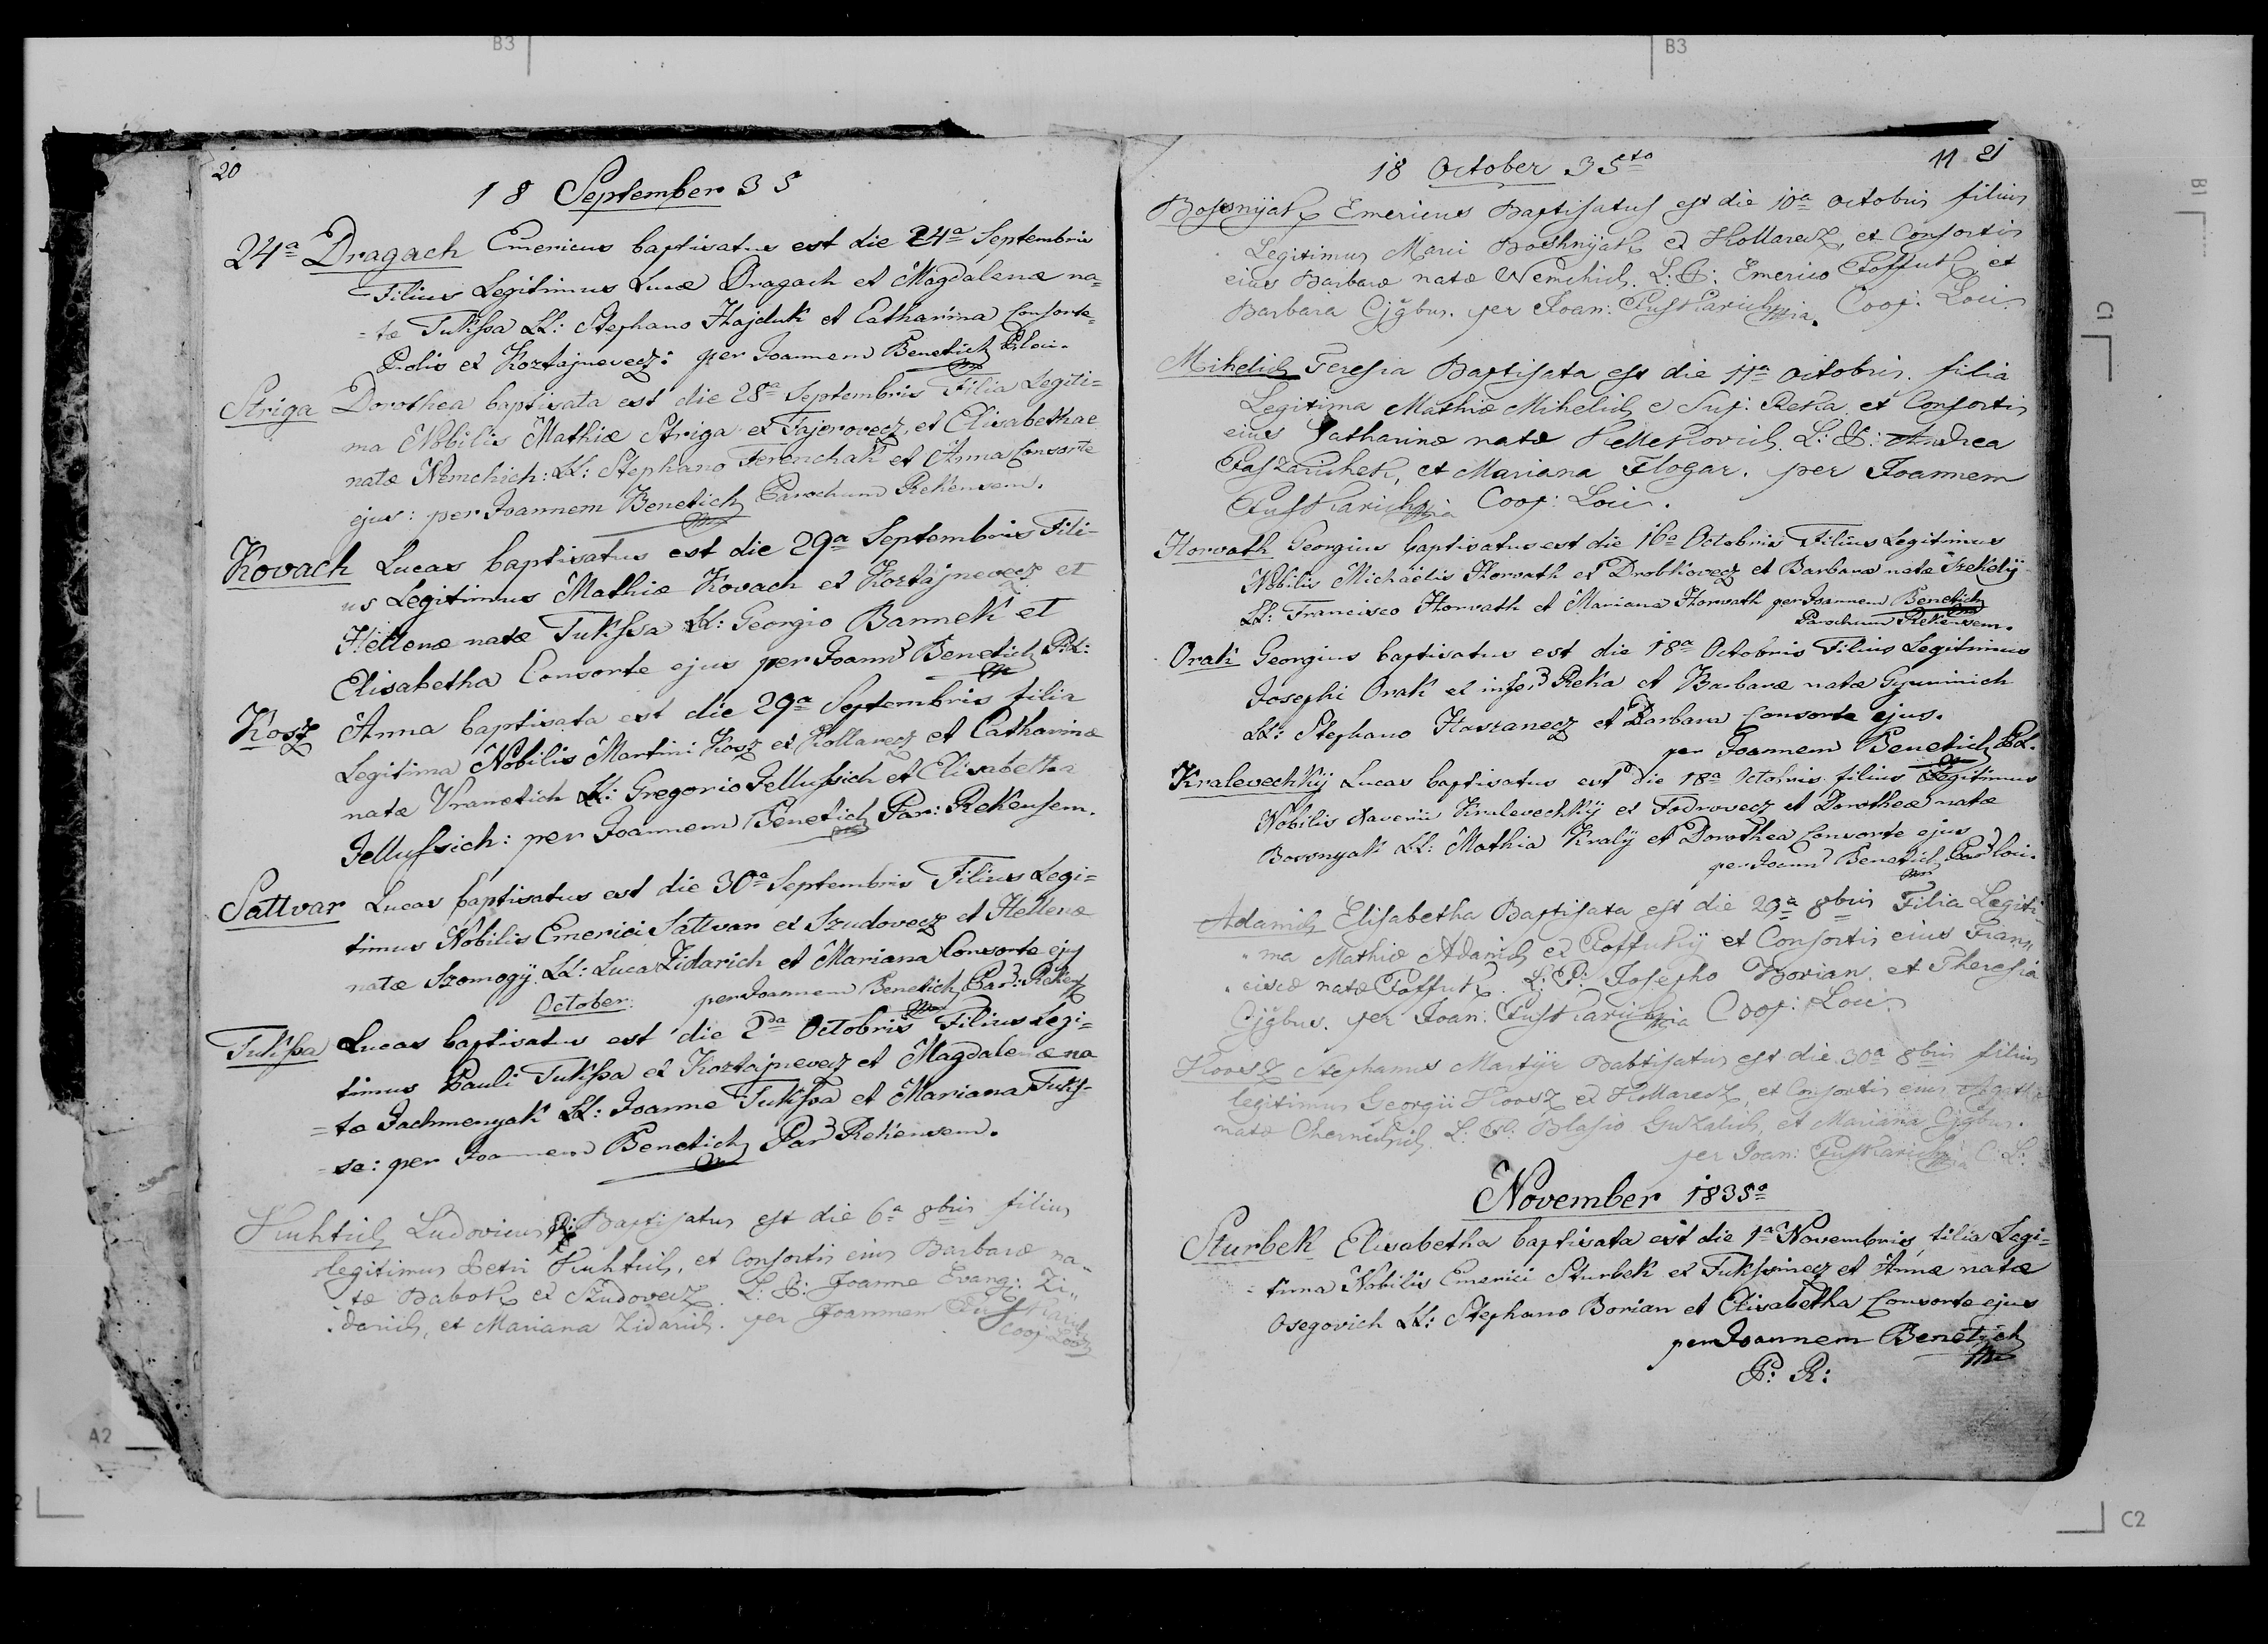 B3
B3
20
18 September 35
24a Dragach Emericus baptisatus est die 24a Septembris
Filius Legitimus Lucæ Dragach et Magdalenæ na=
=tæ Tukssa LL: Stephano Hajduk et Catharina Consorte
Prolis ex Koztajnevecz: per Joannem Benetich P. loci.
Striga Dorothea baptisata est die 28a Septembris Filia Legiti=
ma Nobilis Mathiæ Striga ex Fajerovecz, et Elisabethae
natæ Nemchich: LL: Stephano Ferenchak et Anna Consorte
ejus: per Joannem Benetich Parochum Rekensem.
Kovach Lucas baptisatus est die 29a Septembris Fili-
us Legitimus Mathiæ Kovach ex Koztajnevecz et
Hellenæ natæ Tukssa LL: Georgio Bannek et
Elisabetha Consorte ejus per Joann Benetich P.L:
Kosz Anna baptisata est die 29a Septembris filia
Legitima Nobilis Martini Kosz ex Kollarecz et Catharinæ
natæ Vranetich LL: Gregorio Jellussich et Elisabetha
Jellussich: per Joannem Benetich Par: Rekensem.
Sattvar Lucas baptisatus est die 30a Septembris Filius Legi=
timus Nobilis Emerici Sattvar ex Szudovecz et Hellenæ
natæ Szomogÿ. LL: Luca Zidarich et Mariana Consorte ejus
October: per Joannem Benetich Par: Rekez
Tukssa Lucas baptisatus est die 2da Octobris Filius Legi=
timus Pauli Tukssa ex Koztajnevecz et Magdalenæ na
=tæ Jachmenyak LL: Joanne Tukssa et Mariana Tuks-
sa: per Joannem Benetich Par Rekensem.
Kuhtich Ludovicus Baptisatus est die 6a 8bris filius
legitimus Petri Kuhtich, et Consortis eius Barbaræ na„
tæ Babok ex Szudovecz. L: P: Joanne Evang: Zi„
darich, et Mariana Zidarich. per Joannem
Coop: Loci
18 October 35to
11 21
Bosnÿak Emericus Baptisatus est die 10a octobris filius
Legitimus Marci Boshnÿak ex Kollarecz, et Consortis
eius Barbaræ natæ Nemchich. L: P: Emerico Poffuk, et
Barbara Cjġbus. per Joan: Pustkarich mpria Coop: Loci
Mihelich Teresia Baptisata est die 11a octobris. filia
Legitima Mathiæ Mihelich e Sup: Reka et Consortis
eius Catharinæ natæ Kellekovich. L: P: Andrea
et Mariana Flogar. per Joannem
Pustkarich mpria Coop: Loci.
Horvath Georgius baptisatus est die 16a Octobris Filius Legitimus
Nobilis Michaëlis Horvath ex Drobkovecz et Barbaræ natæ Szekelÿ
LL: Francisco Horvath et Mariana Horvath per Joannem Benetich
Parochum Rekensem.
Orak Georgius baptisatus est die 18a Octobris Filius Legitimus
Josephi Orak ex infer Reka et Barbaræ natæ
LL: Stephano Haszanecz et Barbara Consorte ejus.
per Joannem Benetich P.L.
Kralevechkÿ Lucas baptisatus est die 18a Octobris filius Legitimus
Nobilis Xaverii Kralevechkÿ ex Fodrovecz et Dorotheæ natæ
Borsnyak LL: Mathia Kralÿ et Dorothea Consorte ejus
per Joann Benetich Par loci.
Adamich Elisabetha Baptisata est die 29a 8bris Filia Legiti
„ma Mathiæ Adamich ex Poffukÿ et Consortis eius Fran„
„ciscæ natæ Poffuk. L: P: Josepho Borian, et Theresia
Cjġbus. per Joan: Pustkarich mpria Coop: Loci
Koosz Stephanus Martÿr Babtisatus est die 30a 8bris filius
legitimus Georgii Koosz ex Kollarecz, et Consortis eius Agathæ
natæ L: P: Blasio Guzalich, et Mariana Cjġbus.
per Joan: Pustkarich mpria C: L:
November 1835o
Sturbek Elisabetha baptisata est die 1a Novembris, filia Legi=
=tima Nobilis Emerici Sturbek ex Tukssinecz et Annæ natæ
Osegovich LL: Stephano Borian et Elisabetha Consorte ejus
per Joannem Benetich
P: R:
B1
C1
A2
C2